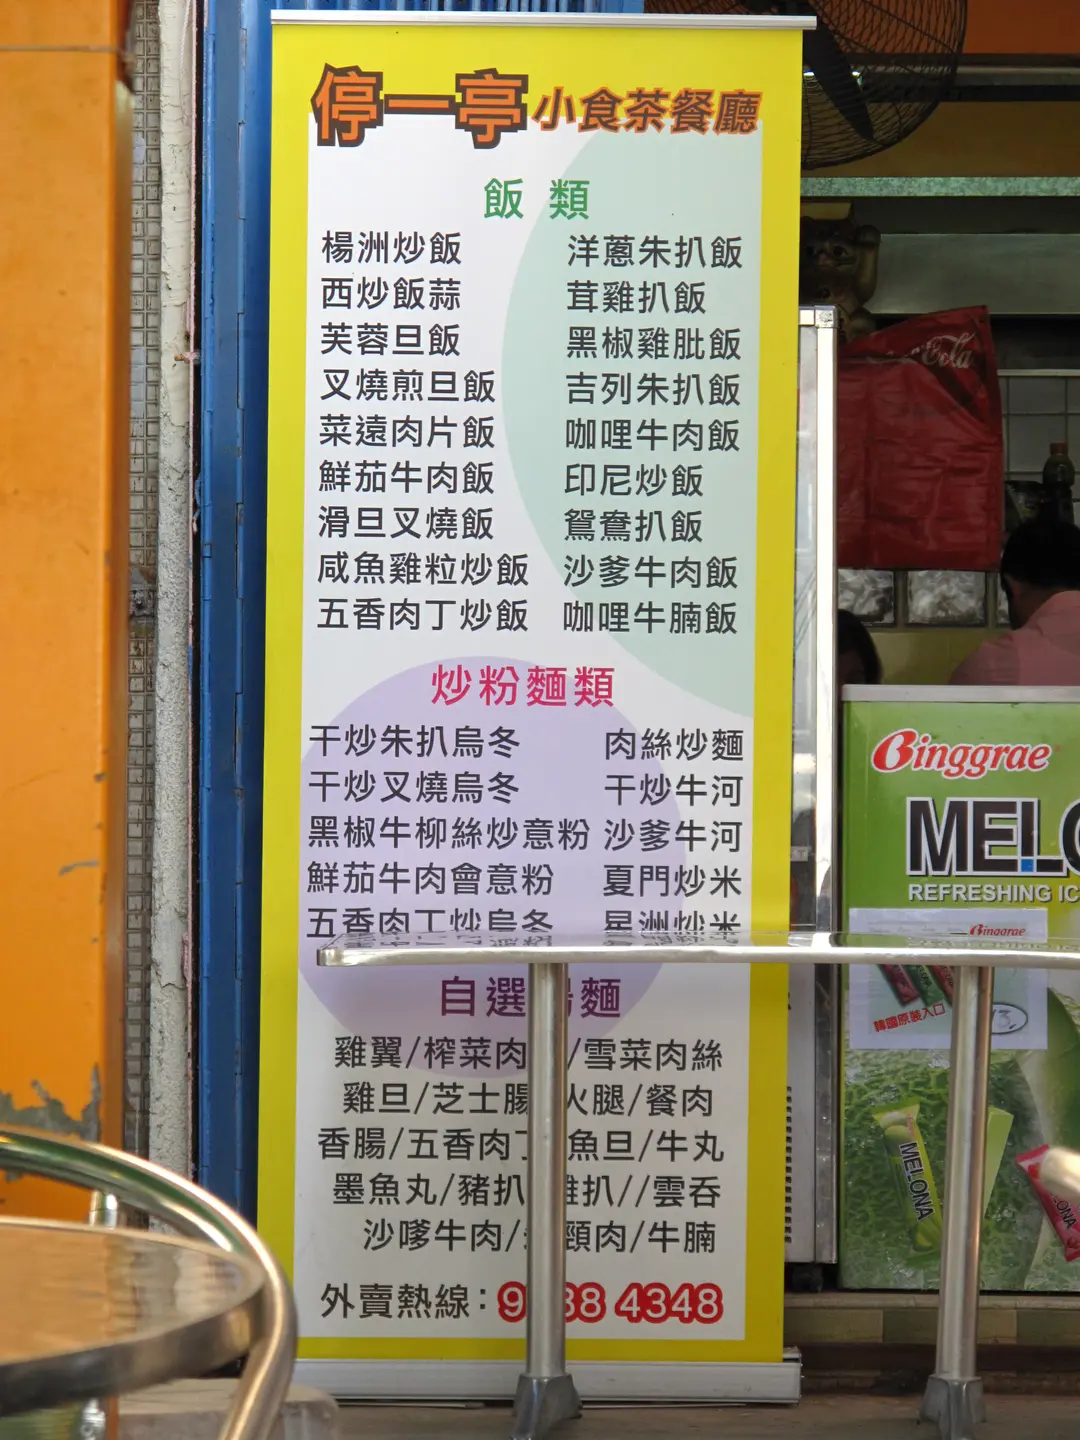 停一亭小食茶餐廳
飯 類
楊洲炒飯
西炒飯蒜
芙蓉旦飯
叉燒煎旦飯
菜遠肉片飯
鮮茄牛肉飯
滑旦叉燒飯
咸魚雞粒炒飯
五香肉丁炒飯
洋蔥朱扒飯
茸雞扒飯
黑椒雞肶飯
吉列朱扒飯
咖哩牛肉飯
印尼炒飯
鴛鴦扒飯
沙爹牛肉飯
咖哩牛腩飯
炒粉麵類
干炒朱扒烏冬
干炒叉燒烏冬
黑椒牛柳絲炒意粉
鮮茄牛肉會意粉
五香肉丁炒烏冬
肉絲炒麵
干炒牛河
沙爹牛河
夏門炒米
星洲炒米
自選湯麵
雞翼/榨菜肉 /雪菜肉絲
雞旦/芝士腸 火腿/餐肉
香腸/五香肉丁 魚旦/牛丸
墨魚丸/豬扒 雞扒//雲吞
沙嗲牛肉/ 頸肉/牛腩
外賣熱線: 9 88 4348
Coca-Cola
Binggrae
MELO
REFRESHING IC
Binggrae
韓國原裝入口
MELONA